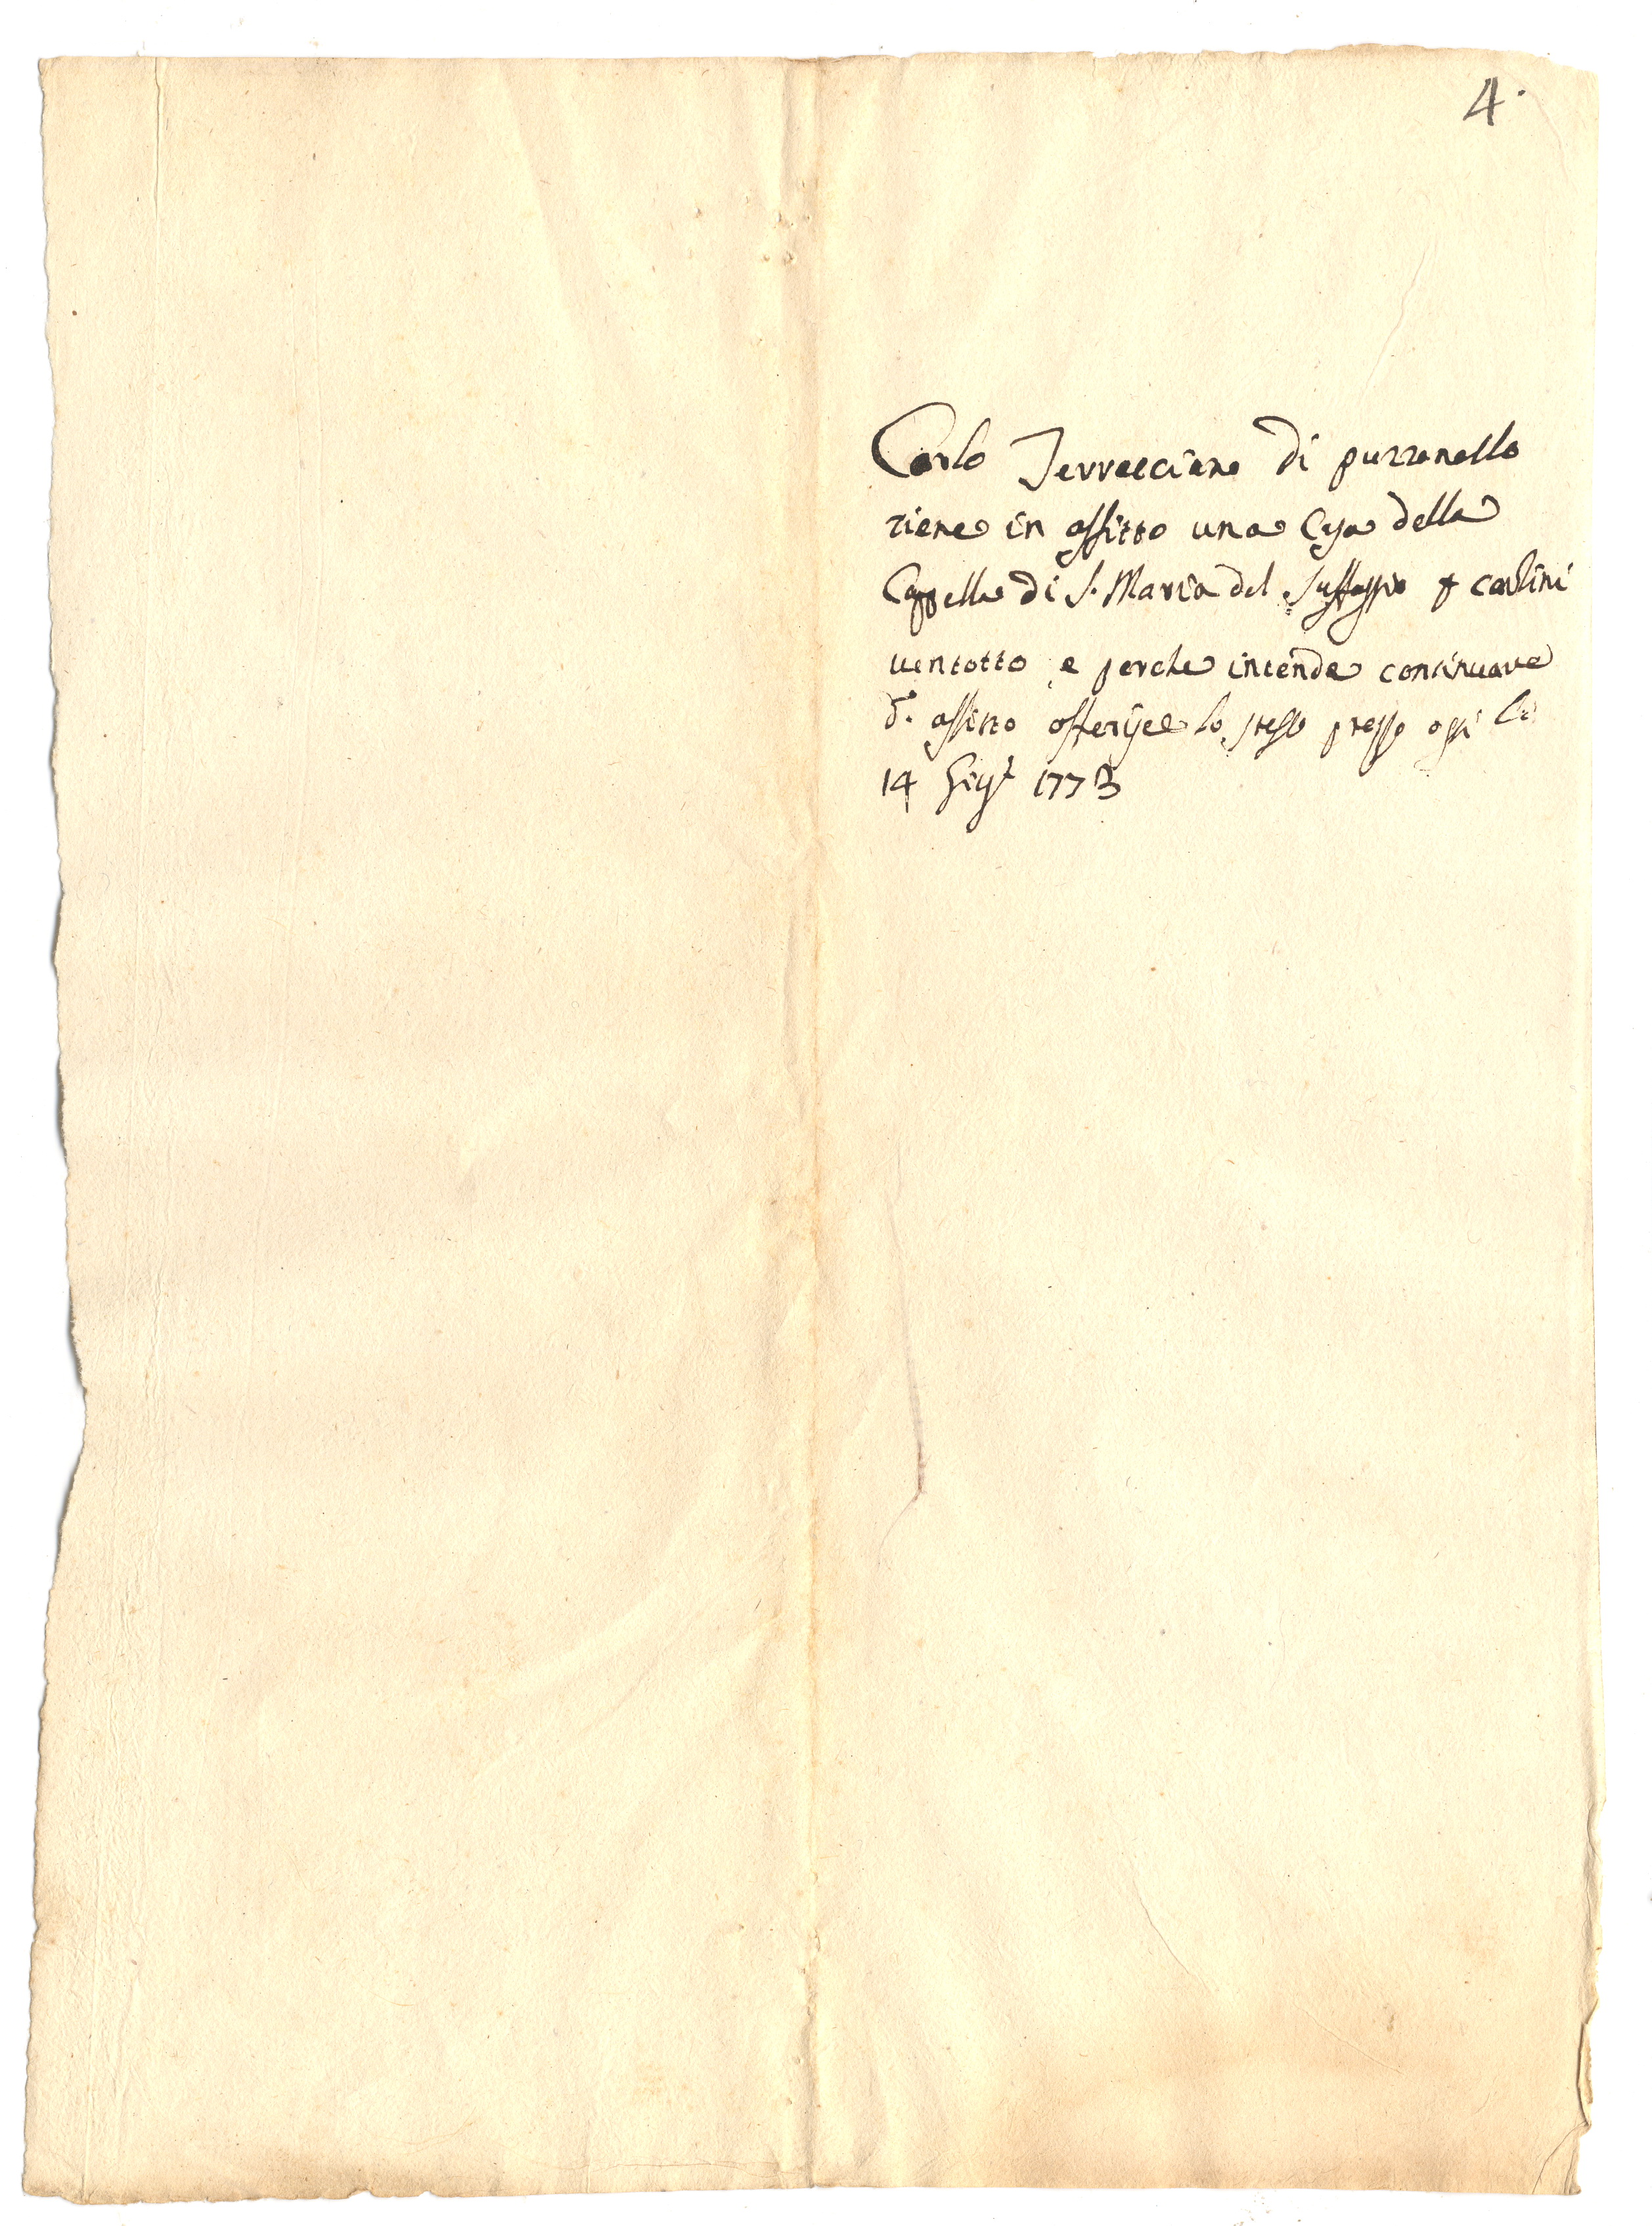 4.
Carlo Terracciano di puzzanello
tiene in affitto una Casa della
Cappella di S. Maria del Suffaggio p carlini
ventotto e perche intende continuare
d.o affitto offerisce lo stesso prezzo oggi li
14 Giug.o 1773